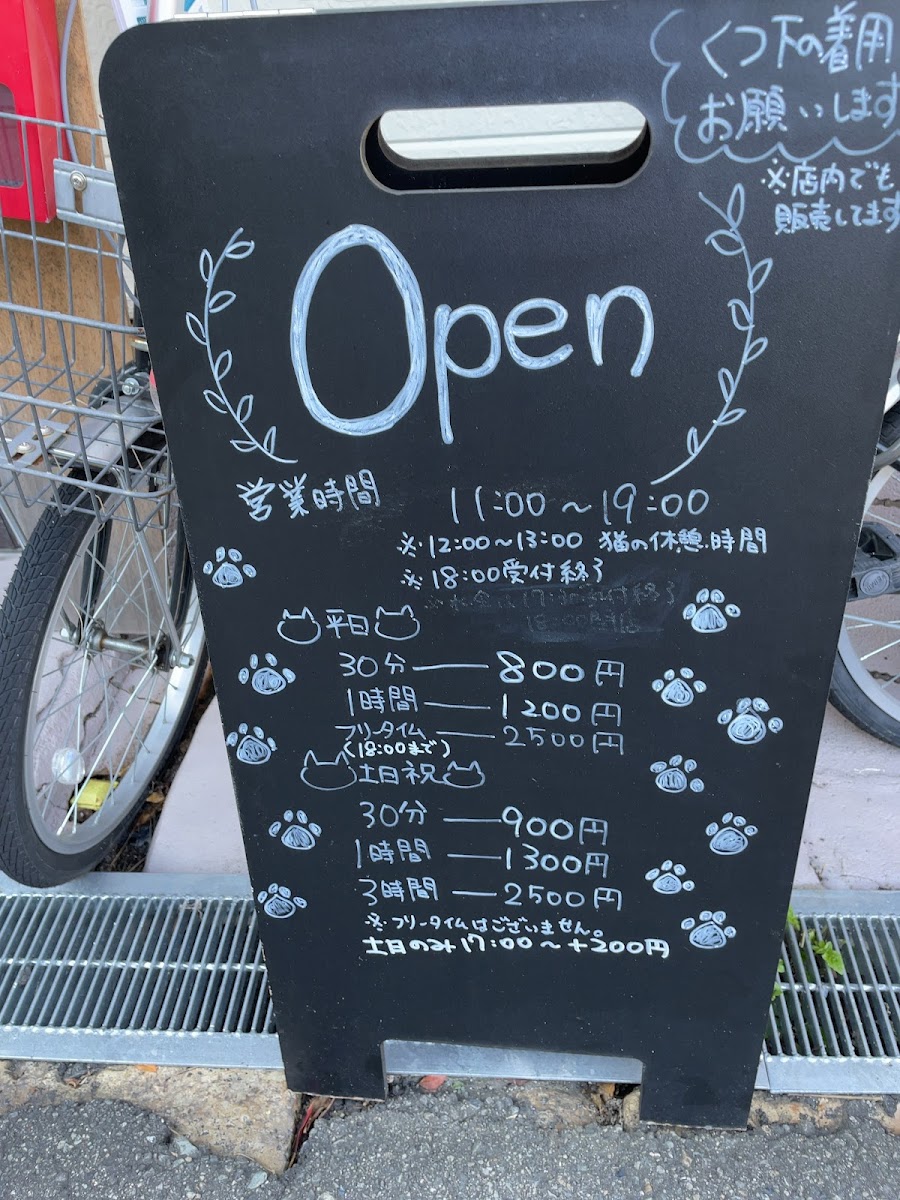 くつ下の着用
お願いします
※店内でも
販売してます
Open
営業時間 11:00〜19:00
※12:00〜13:00 猫の休憩時間
※18:00受付終了
平日
30分 — 800円
1時間 — 1200円
フリータイム — 2500円
(18:00まで)
土日祝
30分 — 900円
1時間 — 1300円
3時間 — 2500円
※フリータイムはございません。
土日のみ17:00〜+200円